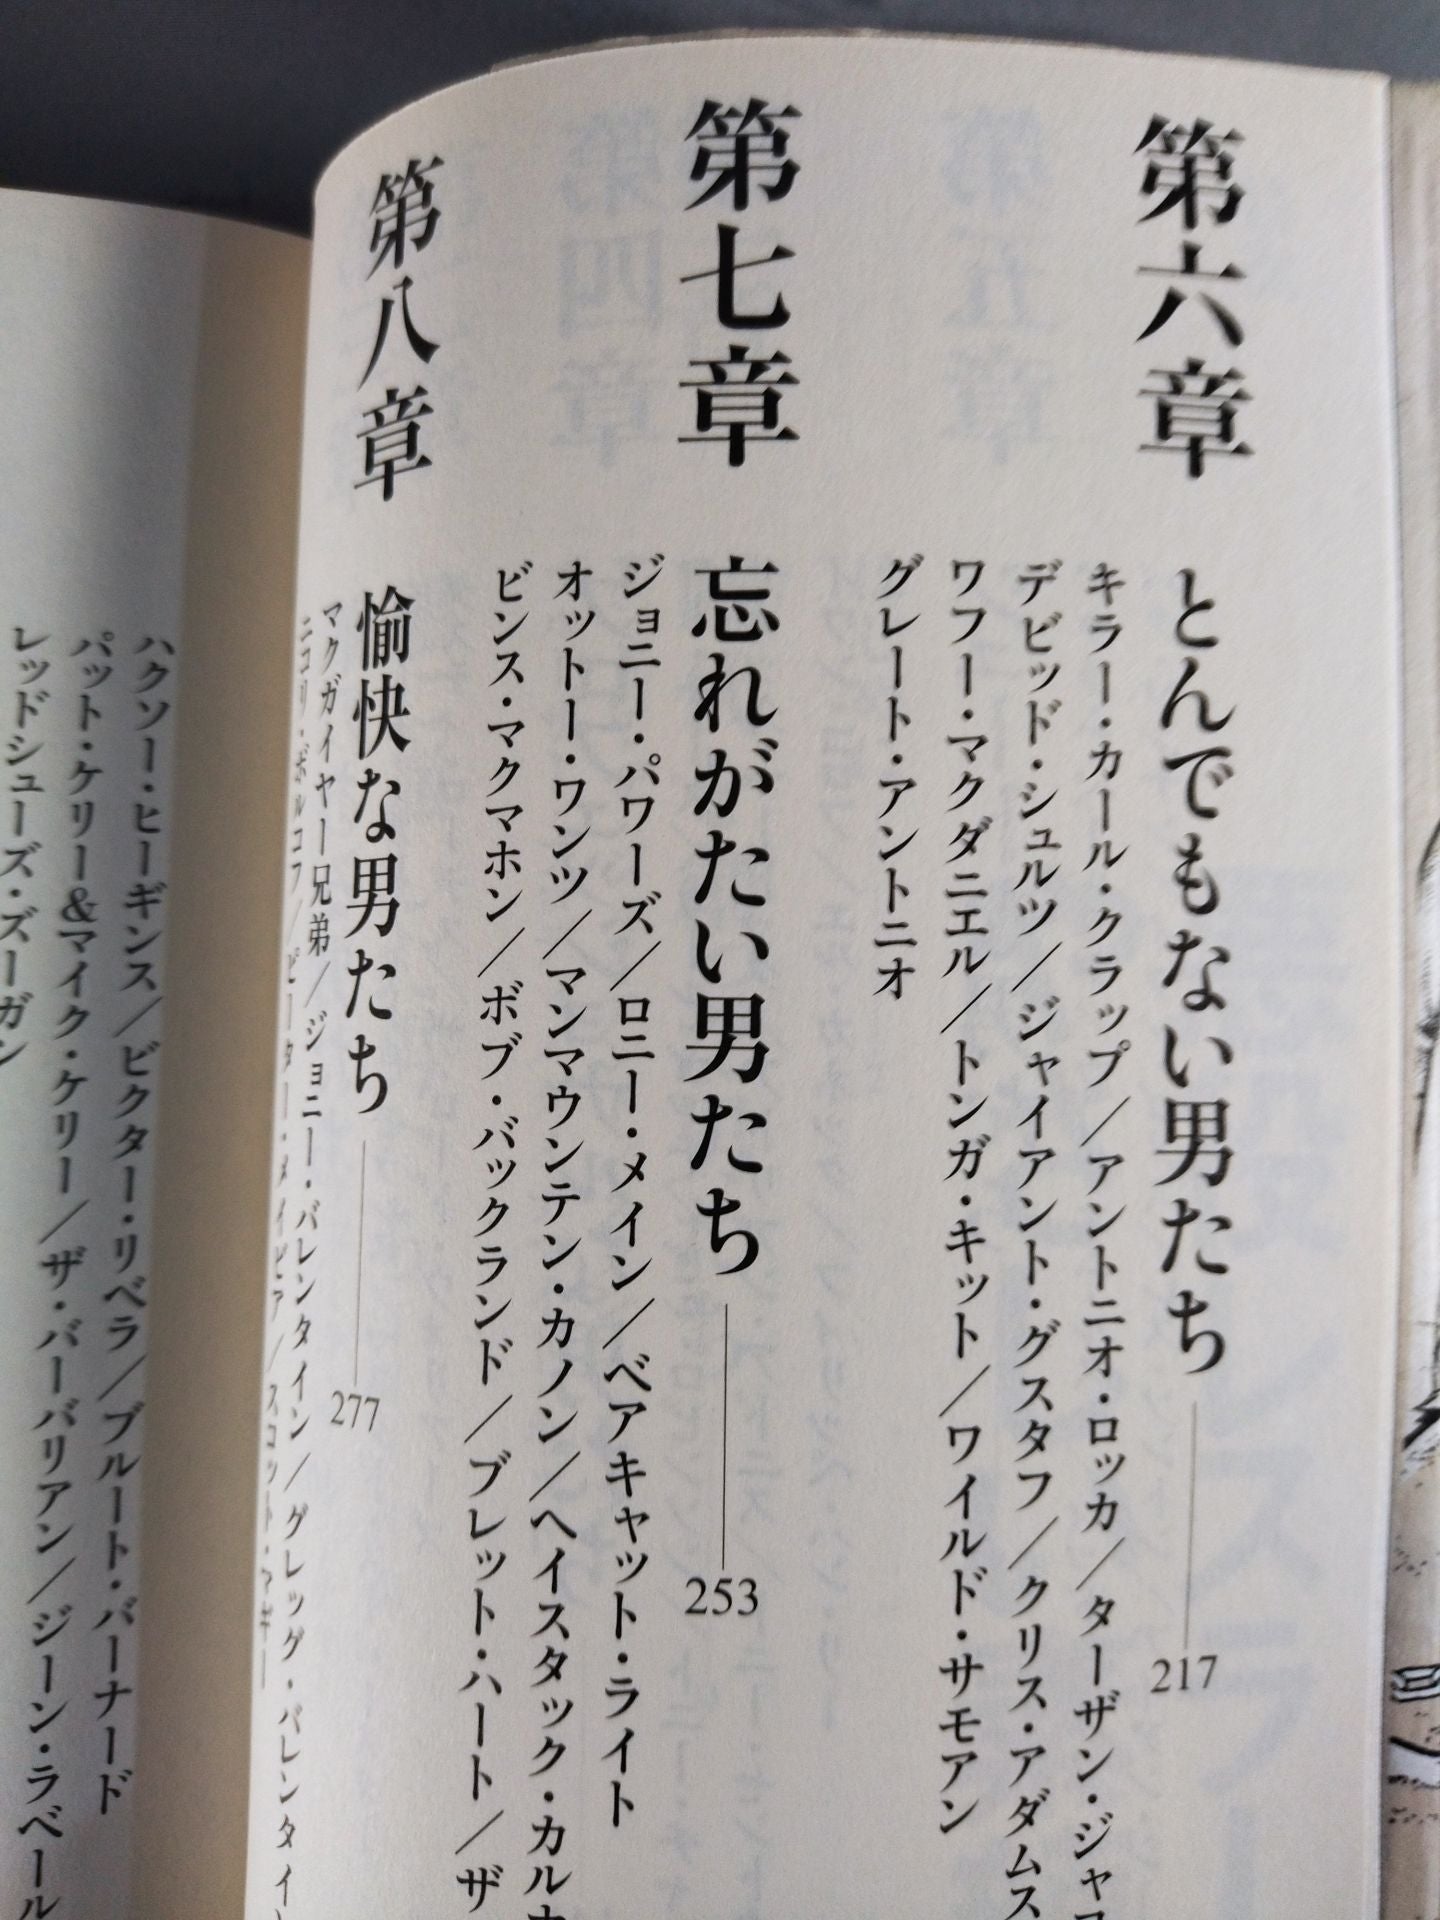 第六章 とんでもない男たち 217
キラー・カール・クラップ/アントニオ・ロッカ/ターザン・ジャコ
デビッド・シュルツ/ジャイアント・グスタフ/クリス・アダムス
ワフー・マクダニエル/トンガ・キット/ワイルド・サモアン
グレート・アントニオ
第七章 忘れがたい男たち 253
ジョニー・パワーズ/ロニー・メイン/ベアキャット・ライト
オットー・ワンツ/マンマウンテン・カノン/ヘイスタック・カル
ビンス・マクマホン/ボブ・バックランド/ブレット・ハート/ザ
第八章 愉快な男たち 277
マクガイヤー兄弟/ジョニー・バレンタイン/グレッグ・バレンタイ
ニコリ・ボルコフ/ピーター・メイビア/スコット・
ハクソー・ヒーギンス/ビクター・リベラ/ブルート・バーナード
パット・ケリー&マイク・ケリー/ザ・バーバリアン/ジーン・ラベール
レッドシューズ・ズーガン